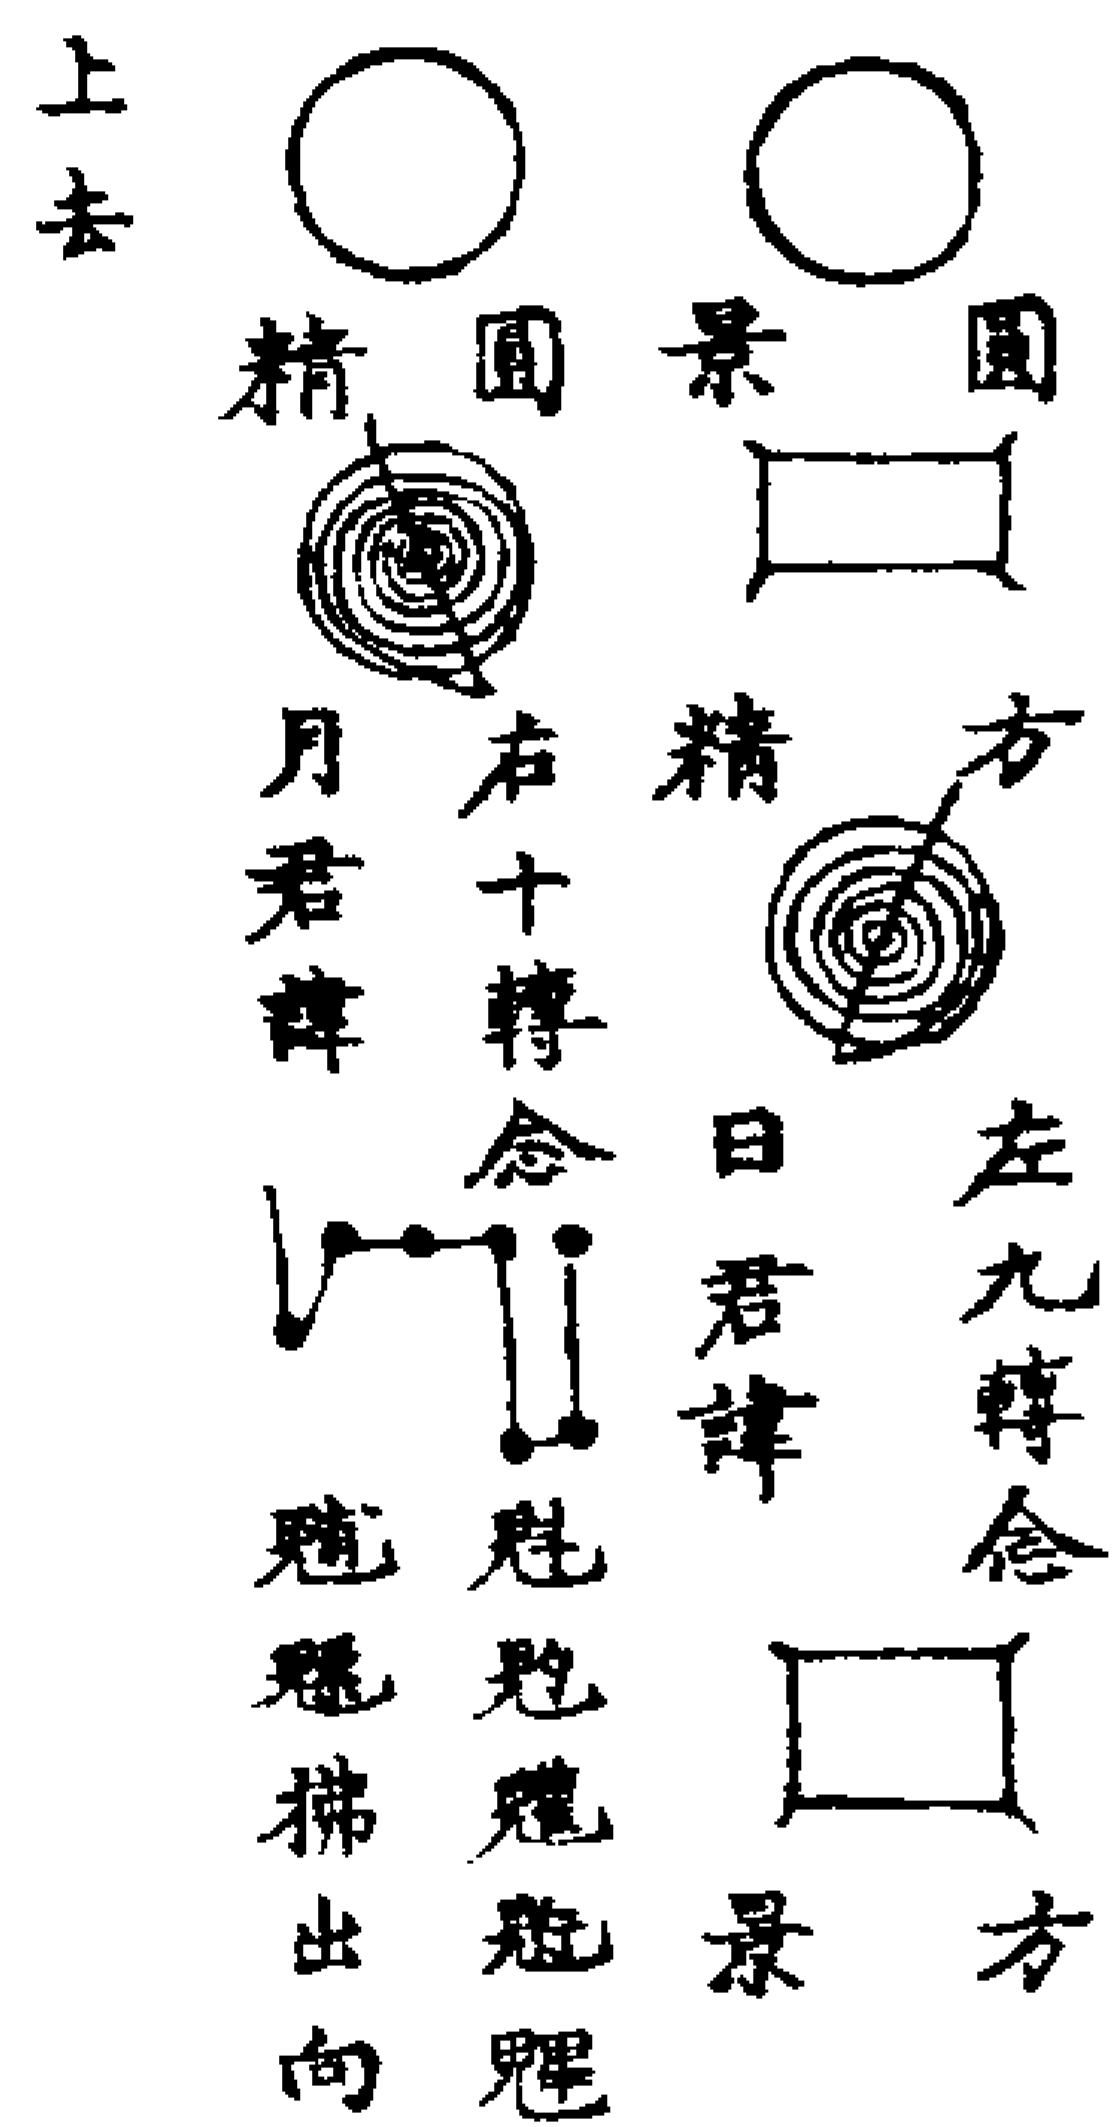 圓景
方精
左九轉念
日君諱
方景
圓精
右十轉念
月君諱
魁魓
魒拂出向
上去